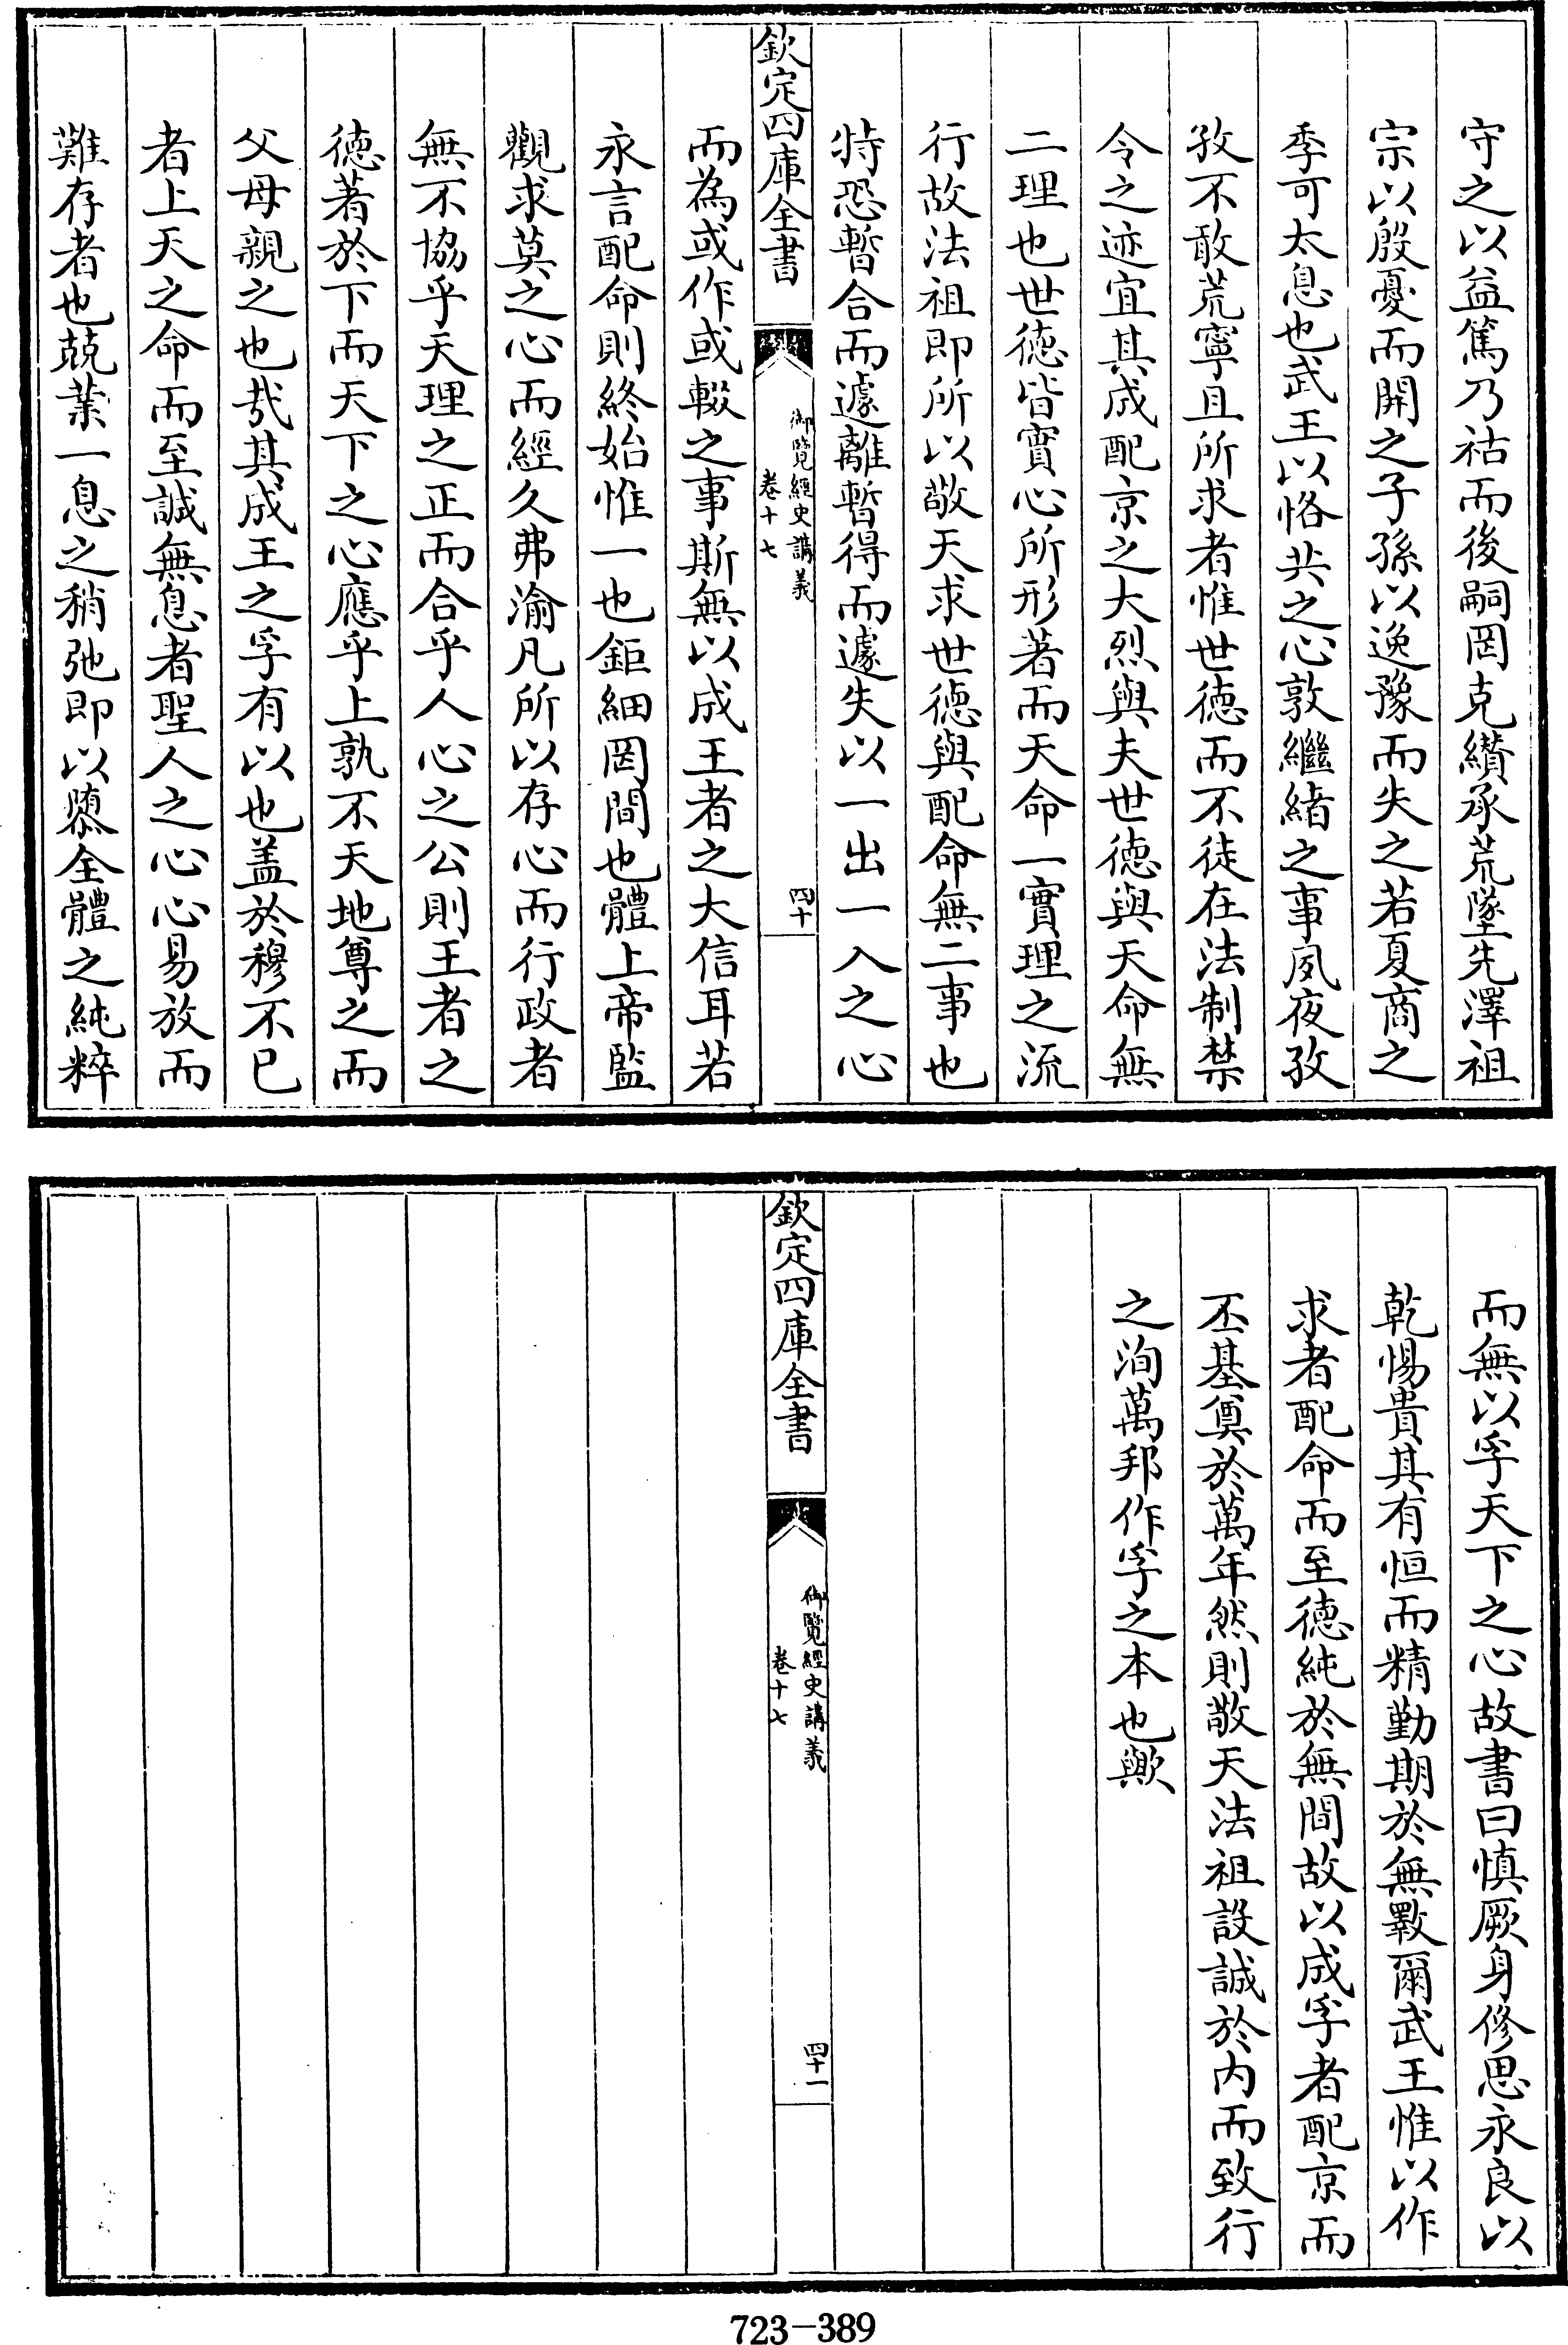 守之以益篤乃祜而後嗣罔克纘承荒墜先澤祖
宗以殷憂而開之子孫以逸豫而失之若夏商之
季可太息也武王以恪共之心敦繼緒之事夙夜孜
孜不敢荒寧且所求者惟世徳而不徒在法制禁
令之迹宜其成配京之大烈與夫世徳與天命無
二理也世徳皆實心所形著而天命一實理之流
行故法祖即所以敬天求世徳與配命無二事也
特恐暫合而遽離暫得而遽失以一出一入之心
欽定四庫全書
御覽經史講義
卷十七
四十
而為或作或輟之事斯無以成王者之大信耳若
永言配命則終始惟一也鉅細罔間也體上帝監
觀求莫之心而經久弗渝凡所以存心而行政者
無不協乎天理之正而合乎人心之公則王者之
徳著於下而天下之心應乎上孰不天地尊之而
父母親之也哉其成王之孚有以也盖於穆不已
者上天之命而至誠無息者聖人之心心易放而
難存者也兢業一息之稍弛即以隳全體之純粹
而無以孚天下之心故書曰慎厥身修思永良以
乾惕貴其有恒而精勤期於無斁爾武王惟以作
求者配命而至徳純於無間故以成孚者配京而
丕基奠於萬年然則敬天法祖設誠於内而致行
之洵萬邦作孚之本也歟
欽定四庫全書
御覽經史講義
卷十七
四十一
723-389